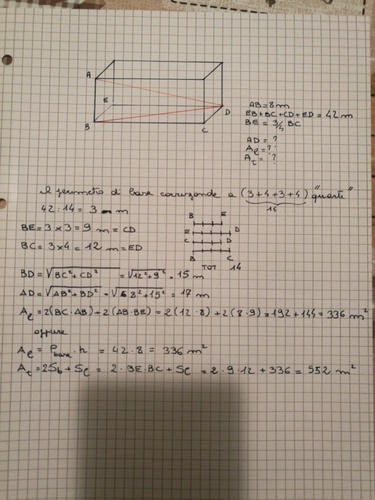 A
E
B
C
D
AB = 8 m
EB + BC + CD + ED = 42 m
BE = 3/4 BC
AD = ?
Aℓ = ?
At = ?
Il perimetro di base corrisponde a (3+4+3+4) "quarti"
14
42 : 14 = 3 m
BE = 3 x 3 = 9 m = CD
BC = 3 x 4 = 12 m = ED
B E
E D
C D
B C
TOT 14
BD = √BC² + CD² = √12² + 9² = 15 m
AD = √AB² + BD² = √8² + 15² = 17 m
Aℓ = 2(BC · AB) + 2(AB · BE) = 2(12 · 8) + 2(8 · 9) = 192 + 144 = 336 m²
oppure
Aℓ = P base · h = 42 · 8 = 336 m²
At = 2Sb + Sℓ = 2 · BE · BC + Sℓ = 2 · 9 · 12 + 336 = 552 m²